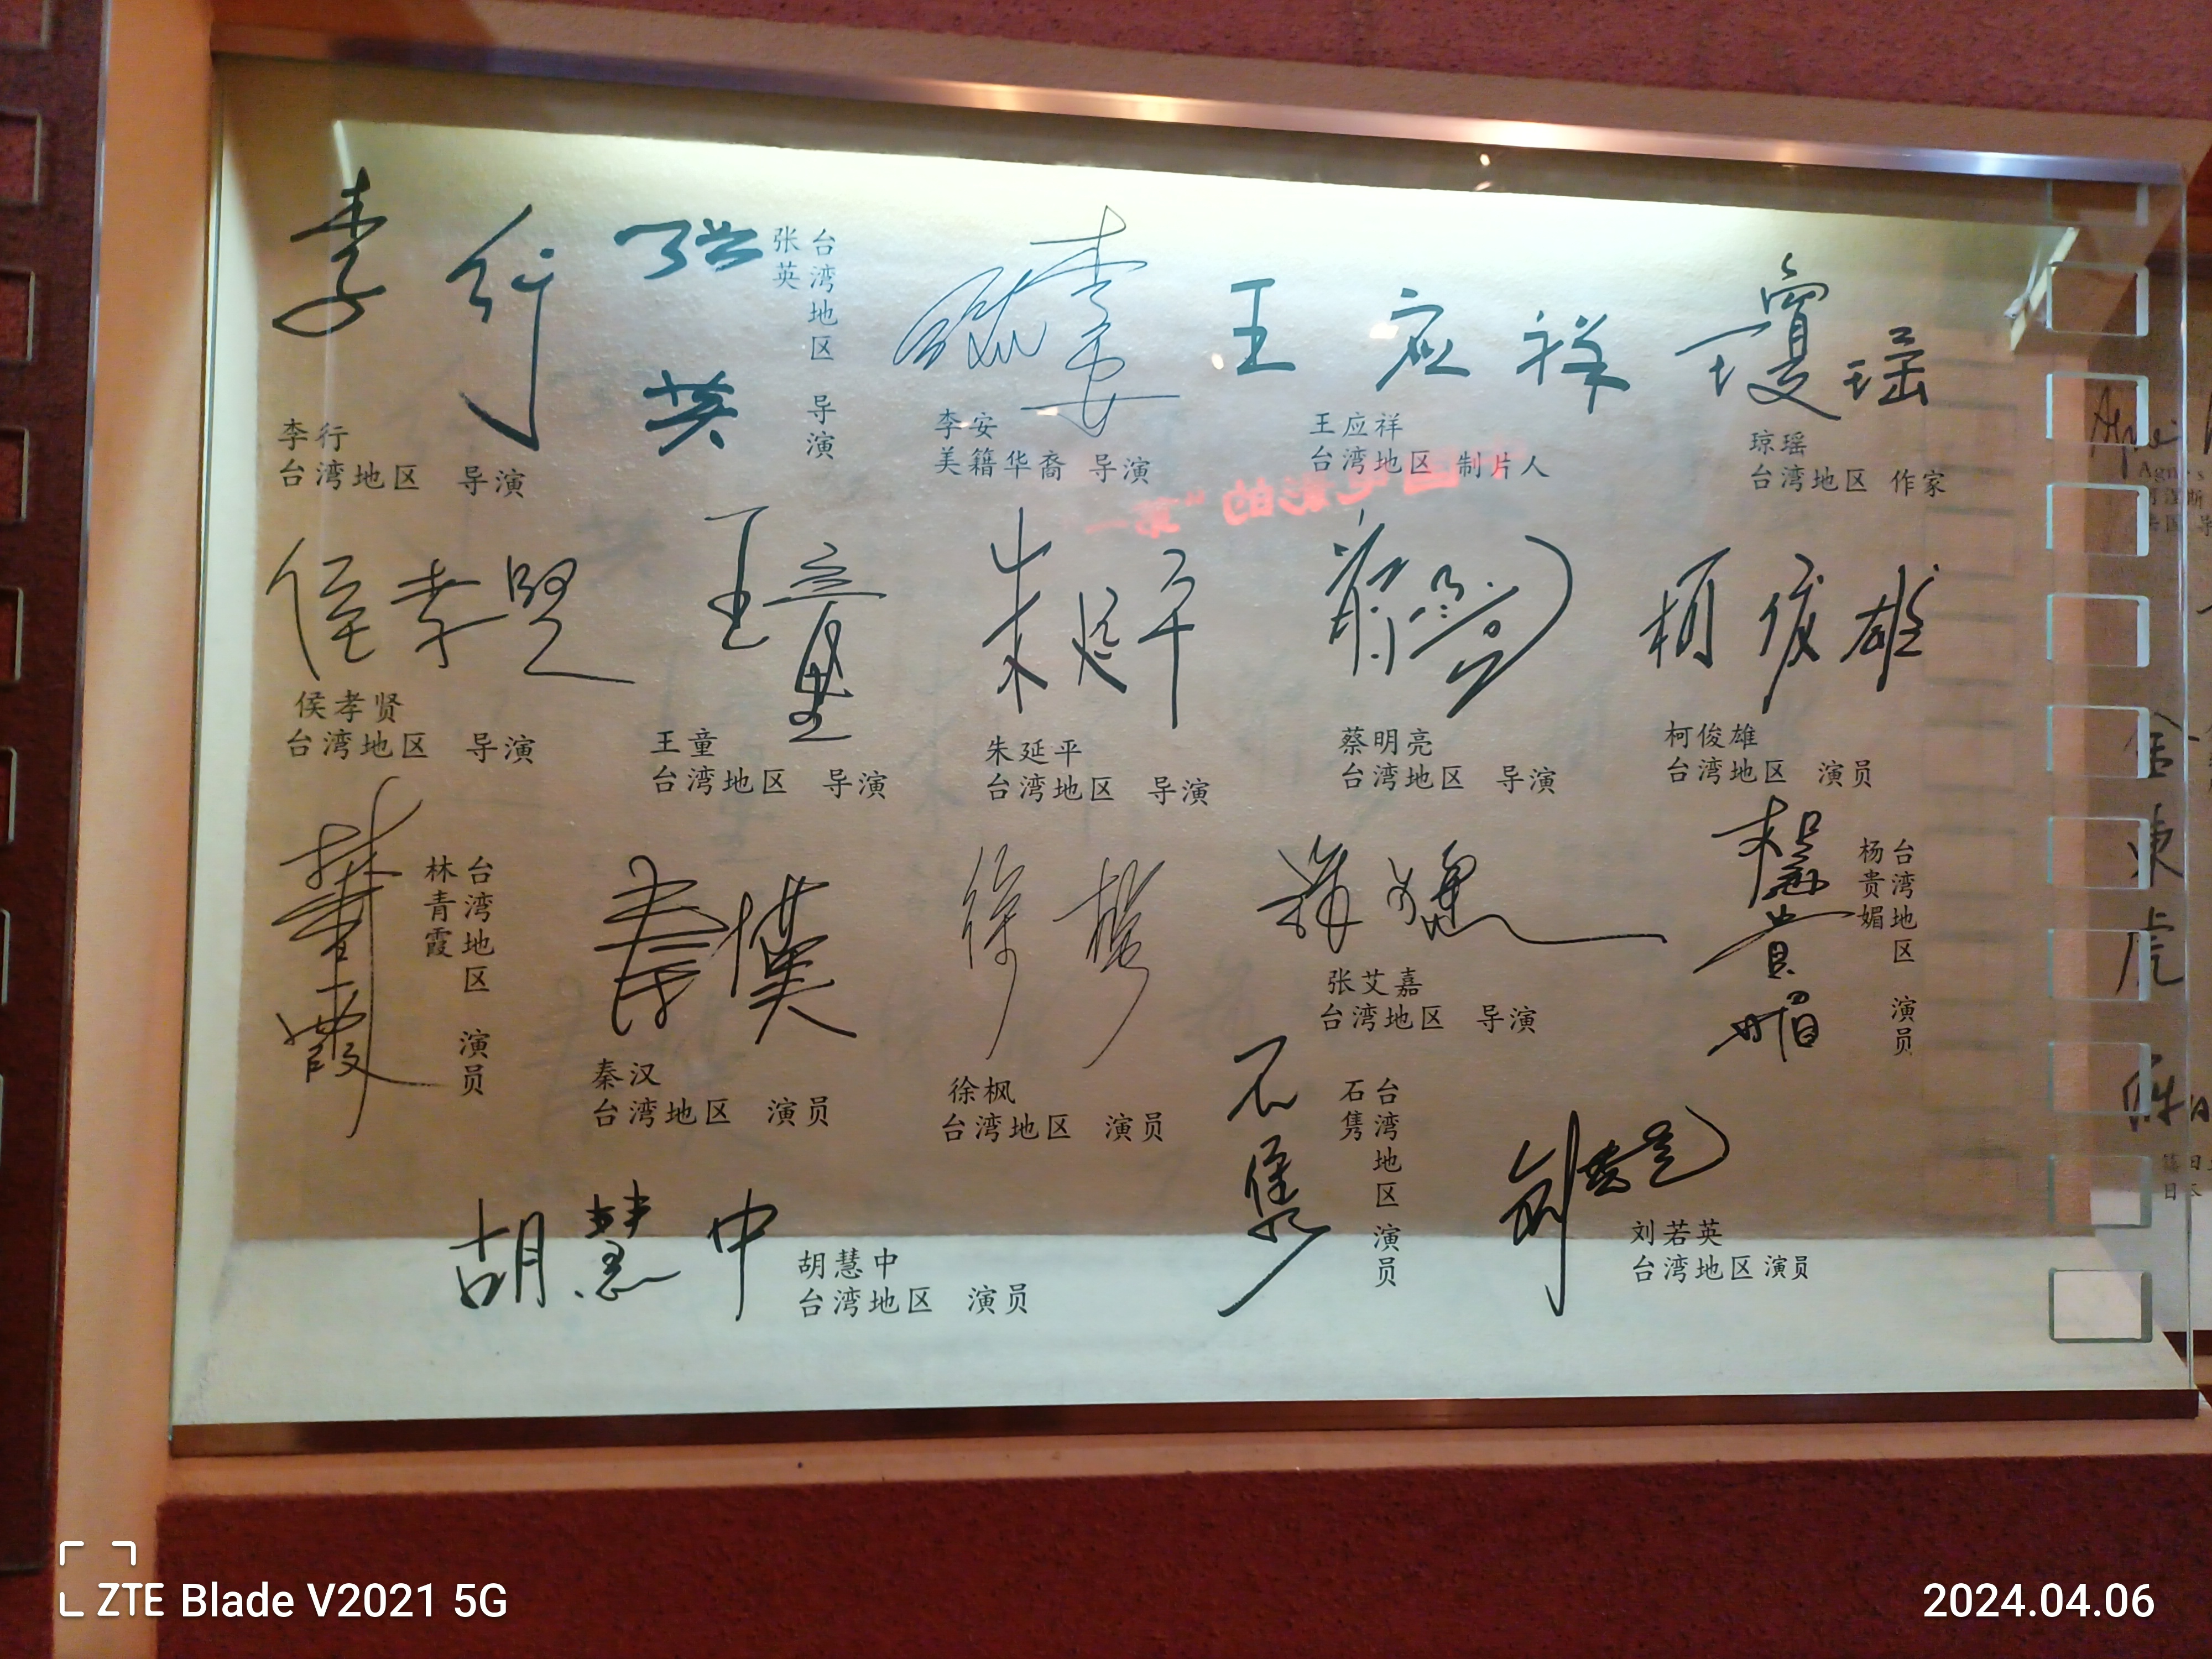 李行
李行
台湾地区 导演
张英
台湾地区 导演
张英
李安
李安
美籍华裔 导演
王应祥
王应祥
台湾地区 制片人
瓊瑶
琼瑶
台湾地区 作家
侯孝賢
侯孝贤
台湾地区 导演
王童
王童
台湾地区 导演
朱延平
朱延平
台湾地区 导演
蔡明亮
台湾地区 导演
柯俊雄
柯俊雄
台湾地区 演员
林青霞
林青霞
台湾地区 演员
秦漢
秦汉
台湾地区 演员
徐楓
徐枫
台湾地区 演员
张艾嘉
台湾地区 导演
楊貴媚
杨贵媚
台湾地区 演员
胡慧中
胡慧中
台湾地区 演员
石隽
石隽
台湾地区 演员
刘若英
刘若英
台湾地区 演员
ZTE Blade V2021 5G
2024.04.06